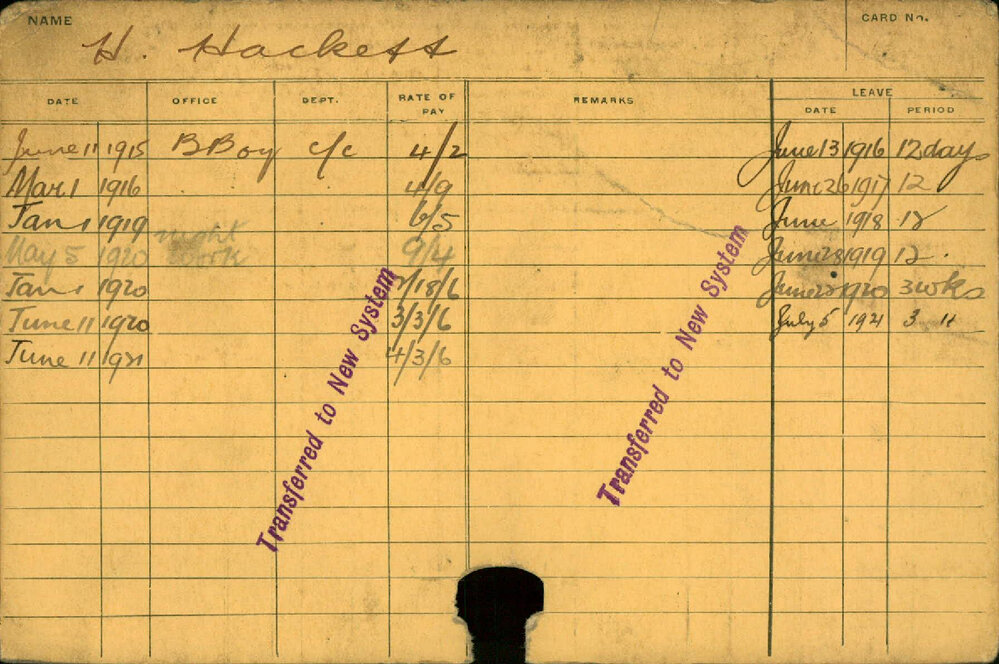 NAME H. Hackett CARD No.
DATE OFFICE DEPT. RATE OF PAY REMARKS LEAVE
DATE PERIOD
June 11 1915 B Boy c/c 4/2 June 13 1916 12 days
Mar 1 1916 4/9 June 26 1917 12
Jan 1 1919 6/5 June 1918 12
May 5 1920 night work 9/4 June 28 1919 12.
Jan 1 1920 /18/6 June 1920 3 wks
June 11 1920 3/3/6 July 5 1921 3 "
June 11 1921 4/3/6
Transferred to New System
Transferred to New System